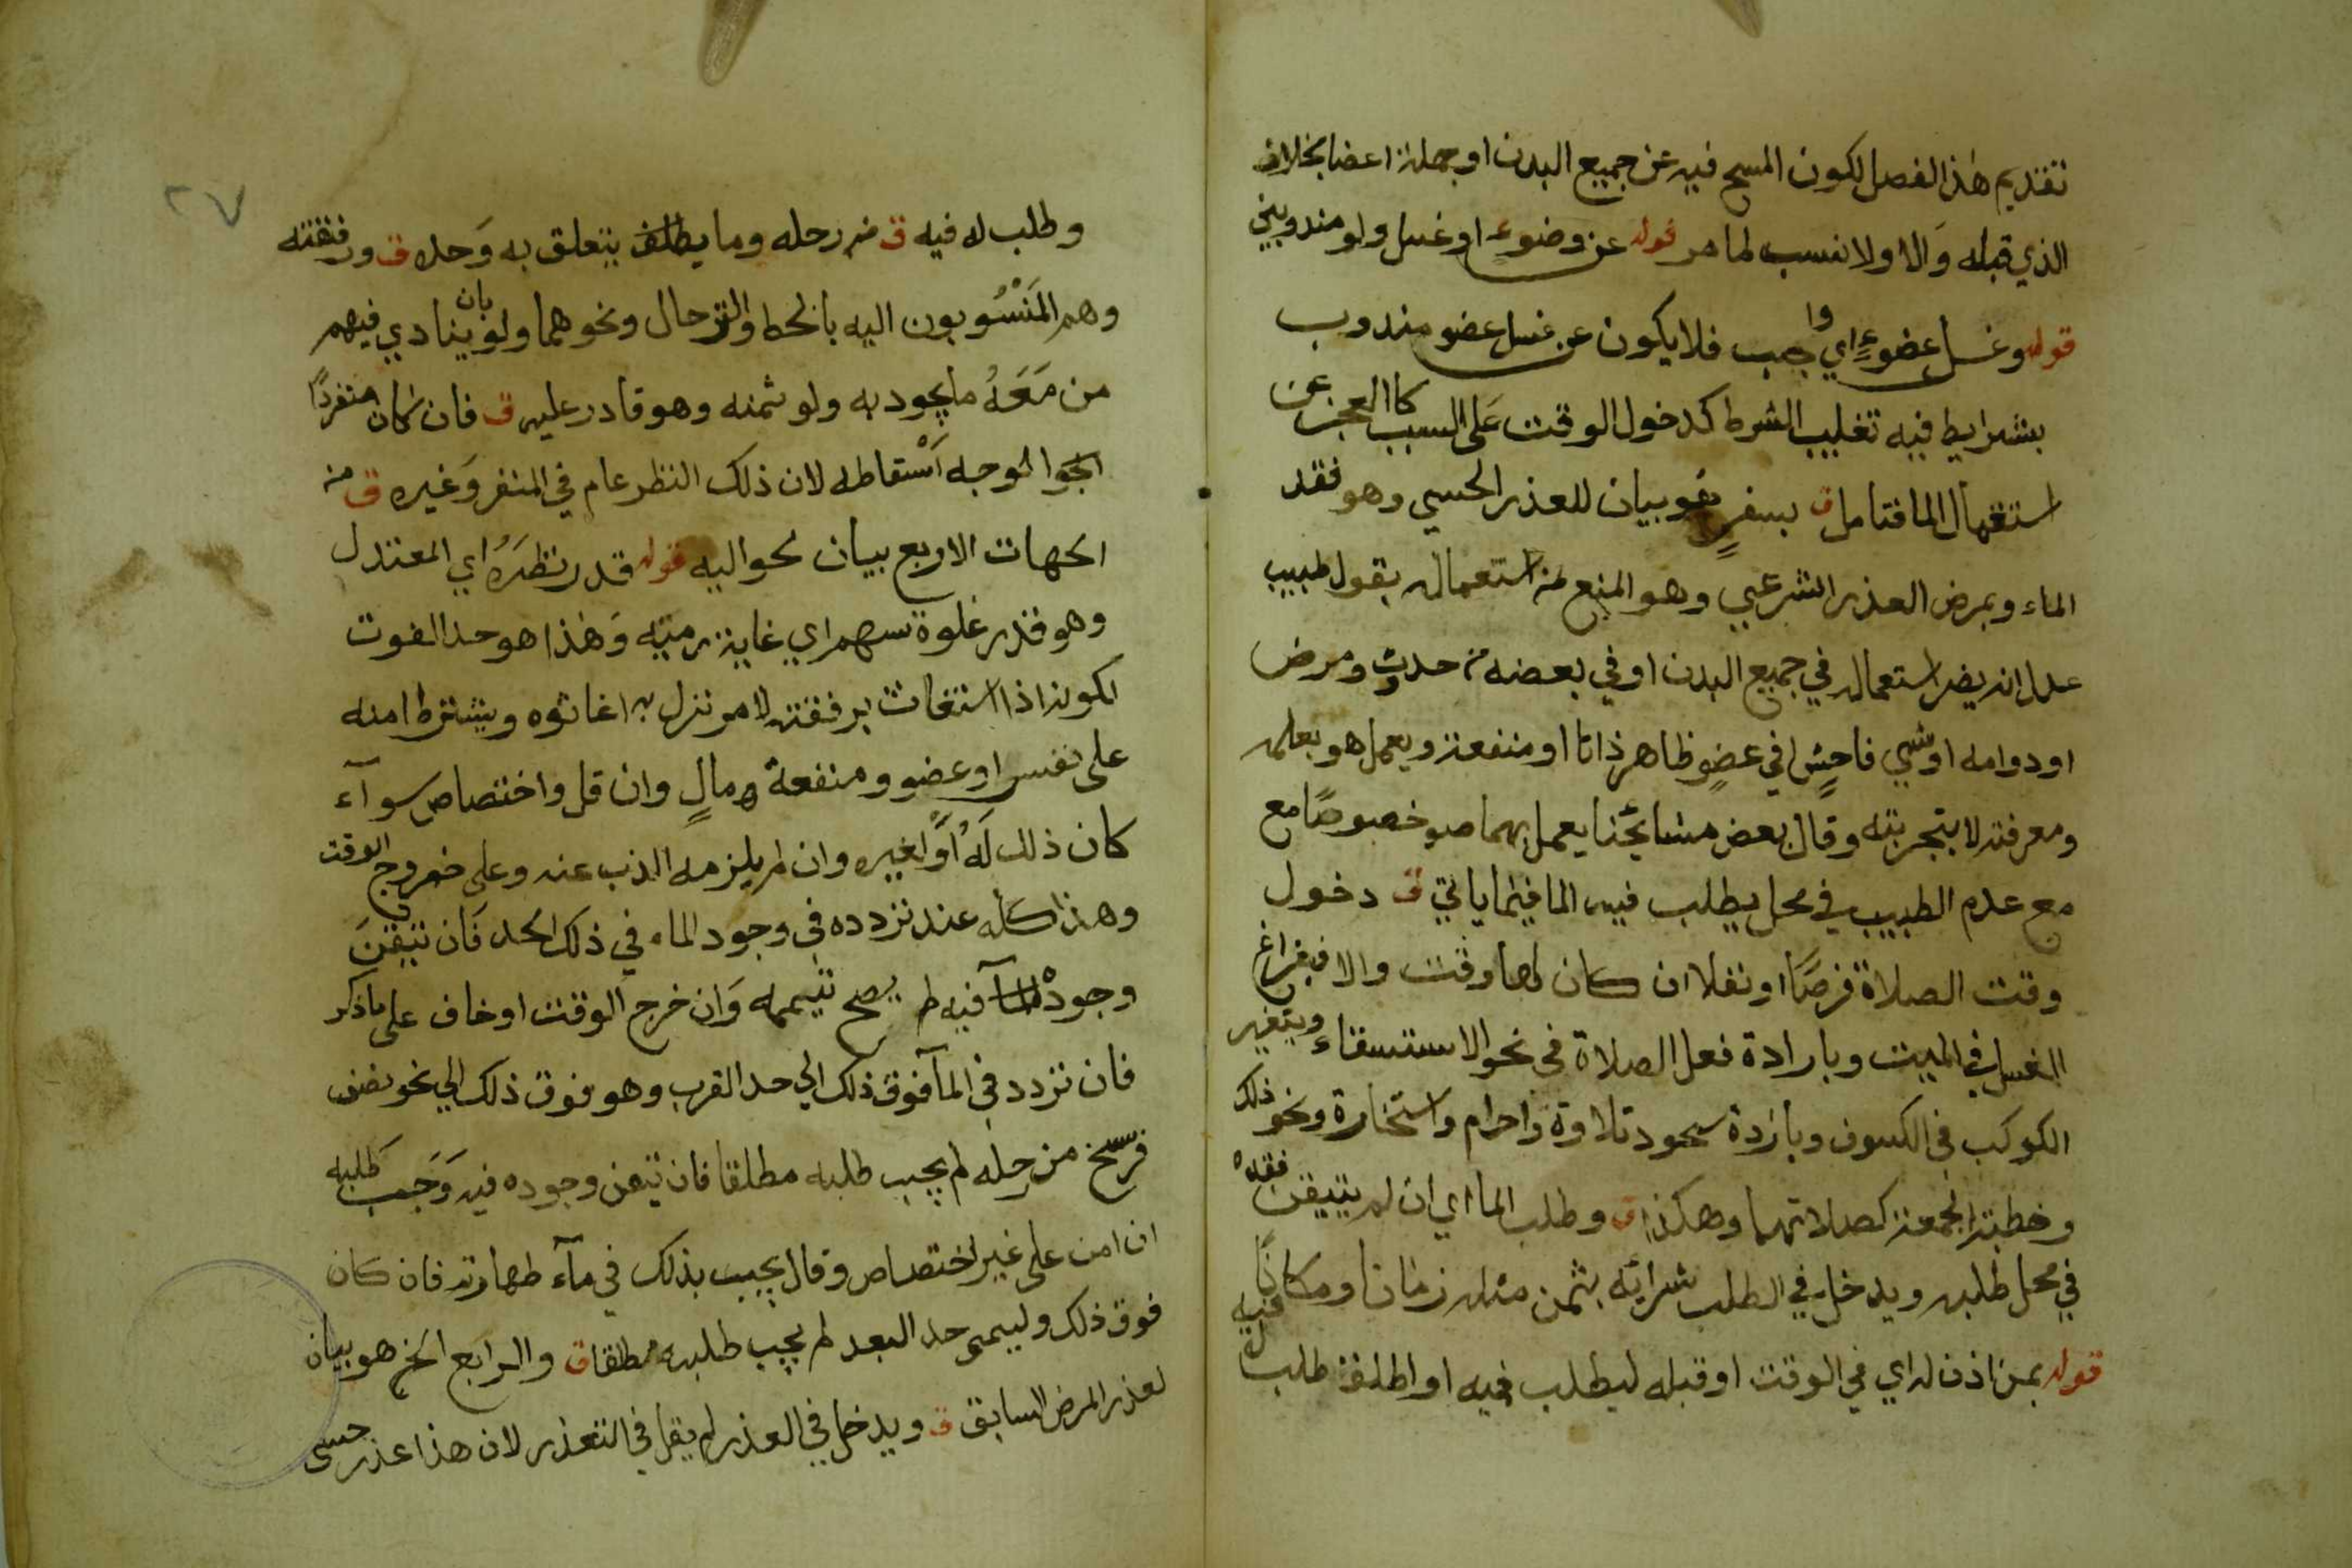 تقديم هذا الفصل لكون المسح فيه عن جميع البدن او جملة اعضا بخلاف
الذي قبله والا ولانسب لما مر قوله عن وضوء او غسل ولو مندوبين
قوله وغسل عضوء اي واجب فلا يكون عن غسل عضو مندوب
بشرايط فيه تغليب الشرط كدخول الوقت على السبب كالعجز عن
استعمال الما فتامل ق بسفر هو بيان للعذر الحسي وهو فقد
الماء وبمرض العذر الشرعي وهو المنع من استعماله بقول طبيب
عدل انه يضر استعماله في جميع البدن او في بعضه من حدوث ومرض
او دوامه او شي فاحش في عضو ظاهر ذاتا او منفعة ويعمل هو بعلمه
ومعرفته لا بتجربته وقال بعض مشايخنا يعمل بهما خصوصا مع
مع عدم الطبيب في محل يطلب فيه الما فيما ياتي ق دخول
وقت الصلاة فرضا او نفلا ان كان لها وقت والا فبفراغ
الغسل في الميت وبارادة فعل الصلاة في نحو الاستسقاء وبتغير
الكوكب في الكسوف وبارادة سجود تلاوة واحرام واستخارة ونحو ذلك
وخطبة الجمعة كصلاتهما وهكذا ق وطلب الما اي ان لم يتيقن فقده
في محل طلبه ويدخل في الطلب شرائه بثمن مثله زمانا ومكانا
قوله بمن اذن له اي في الوقت او قبله ليطلب فيه او اطلق طلب له فيه
٢٧
وطلب له فيه ق من رحله وما يتعلق به وحله ق ورفقته
وهم المنسوبون اليه بالحط والترحال ونحوهما ولو بان ينادي فيهم
من معه ما يجود به ولو ثمنه وهو قادر عليه ق فان كان منفردا
الخ الوجه اسقاطه لان ذلك النظر عام في المنفر وغيره ق من
الجهات الاربع بيان لحواليه قوله قدر نظره اي المعتدل
وهو قدر غلوة سهم اي غاية رميته وهذا هو حد الغوت
لكونه اذا استغاث برفقته لامر نزل به اغاثوه ويشترط امنه
على نفس او عضو ومنفعة ومال وان قل واختصاص سوآء
كان ذلك له او لغيره وان لم يلزمه الذب عنه وعلى خروج الوقت
وهذا كله عند تردده في وجود الماء في ذلك الحد فان تيقن
وجود المآ فيه لم يصح تيممه وان خرج الوقت او خاف على ما ذكر
فان تردد في المآ فوق ذلك الي حد القرب وهو فوق ذلك الي نحو نصف
فرسخ من رحله لم يجب طلبه مطلقا فان تيقن وجوده فيه وجب طلبه
ان امن على غير اختصاص وقال يجب بذلك في مآء طهارته فان كان
فوق ذلك وليسمى حد البعد لم يجب طلبه مطلقا ق والرابع الخ هو بيان
لعذر المرض السابق ق ويدخل في العذر لم يقل في التعذر لان هذا عذر حسى